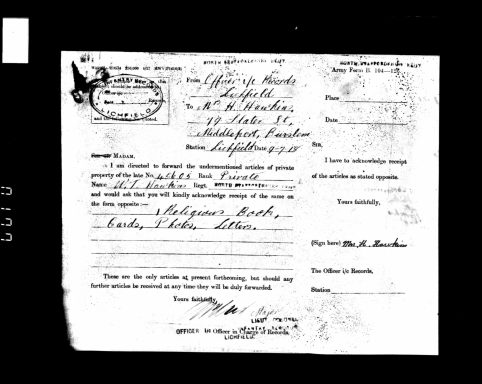 NORTH STAFFORDSHIRE REGT
From Officer i/c Records
Lichfield
To Mrs H. Hawkins,
79 Slater St,
Middleport, Burslem
Station Lichfield Date 9-7-18
LICHFIELD
MADAM,
I am directed to forward the undermentioned articles of private
property of the late No. Rank Private
Name W.T. Hawkins Regt. NORTH STAFFORDSHIRE
and would ask that you will kindly acknowledge receipt of the same on
the form opposite:—
1 Religious Book,
Cards, Photos, Letters.
These are the only articles at present forthcoming, but should any
further articles be received at any time they will be duly forwarded.
Yours faithfully,
Major
OFFICER Officer in Charge of Records,
LICHFIELD.
NORTH STAFFORDSHIRE REGT
Army Form B. 104—
Place
Date
SIR,
I have to acknowledge receipt
of the articles as stated opposite.
Yours faithfully,
(Sign here) Mrs H. Hawkins
The Officer i/c Records,
Station